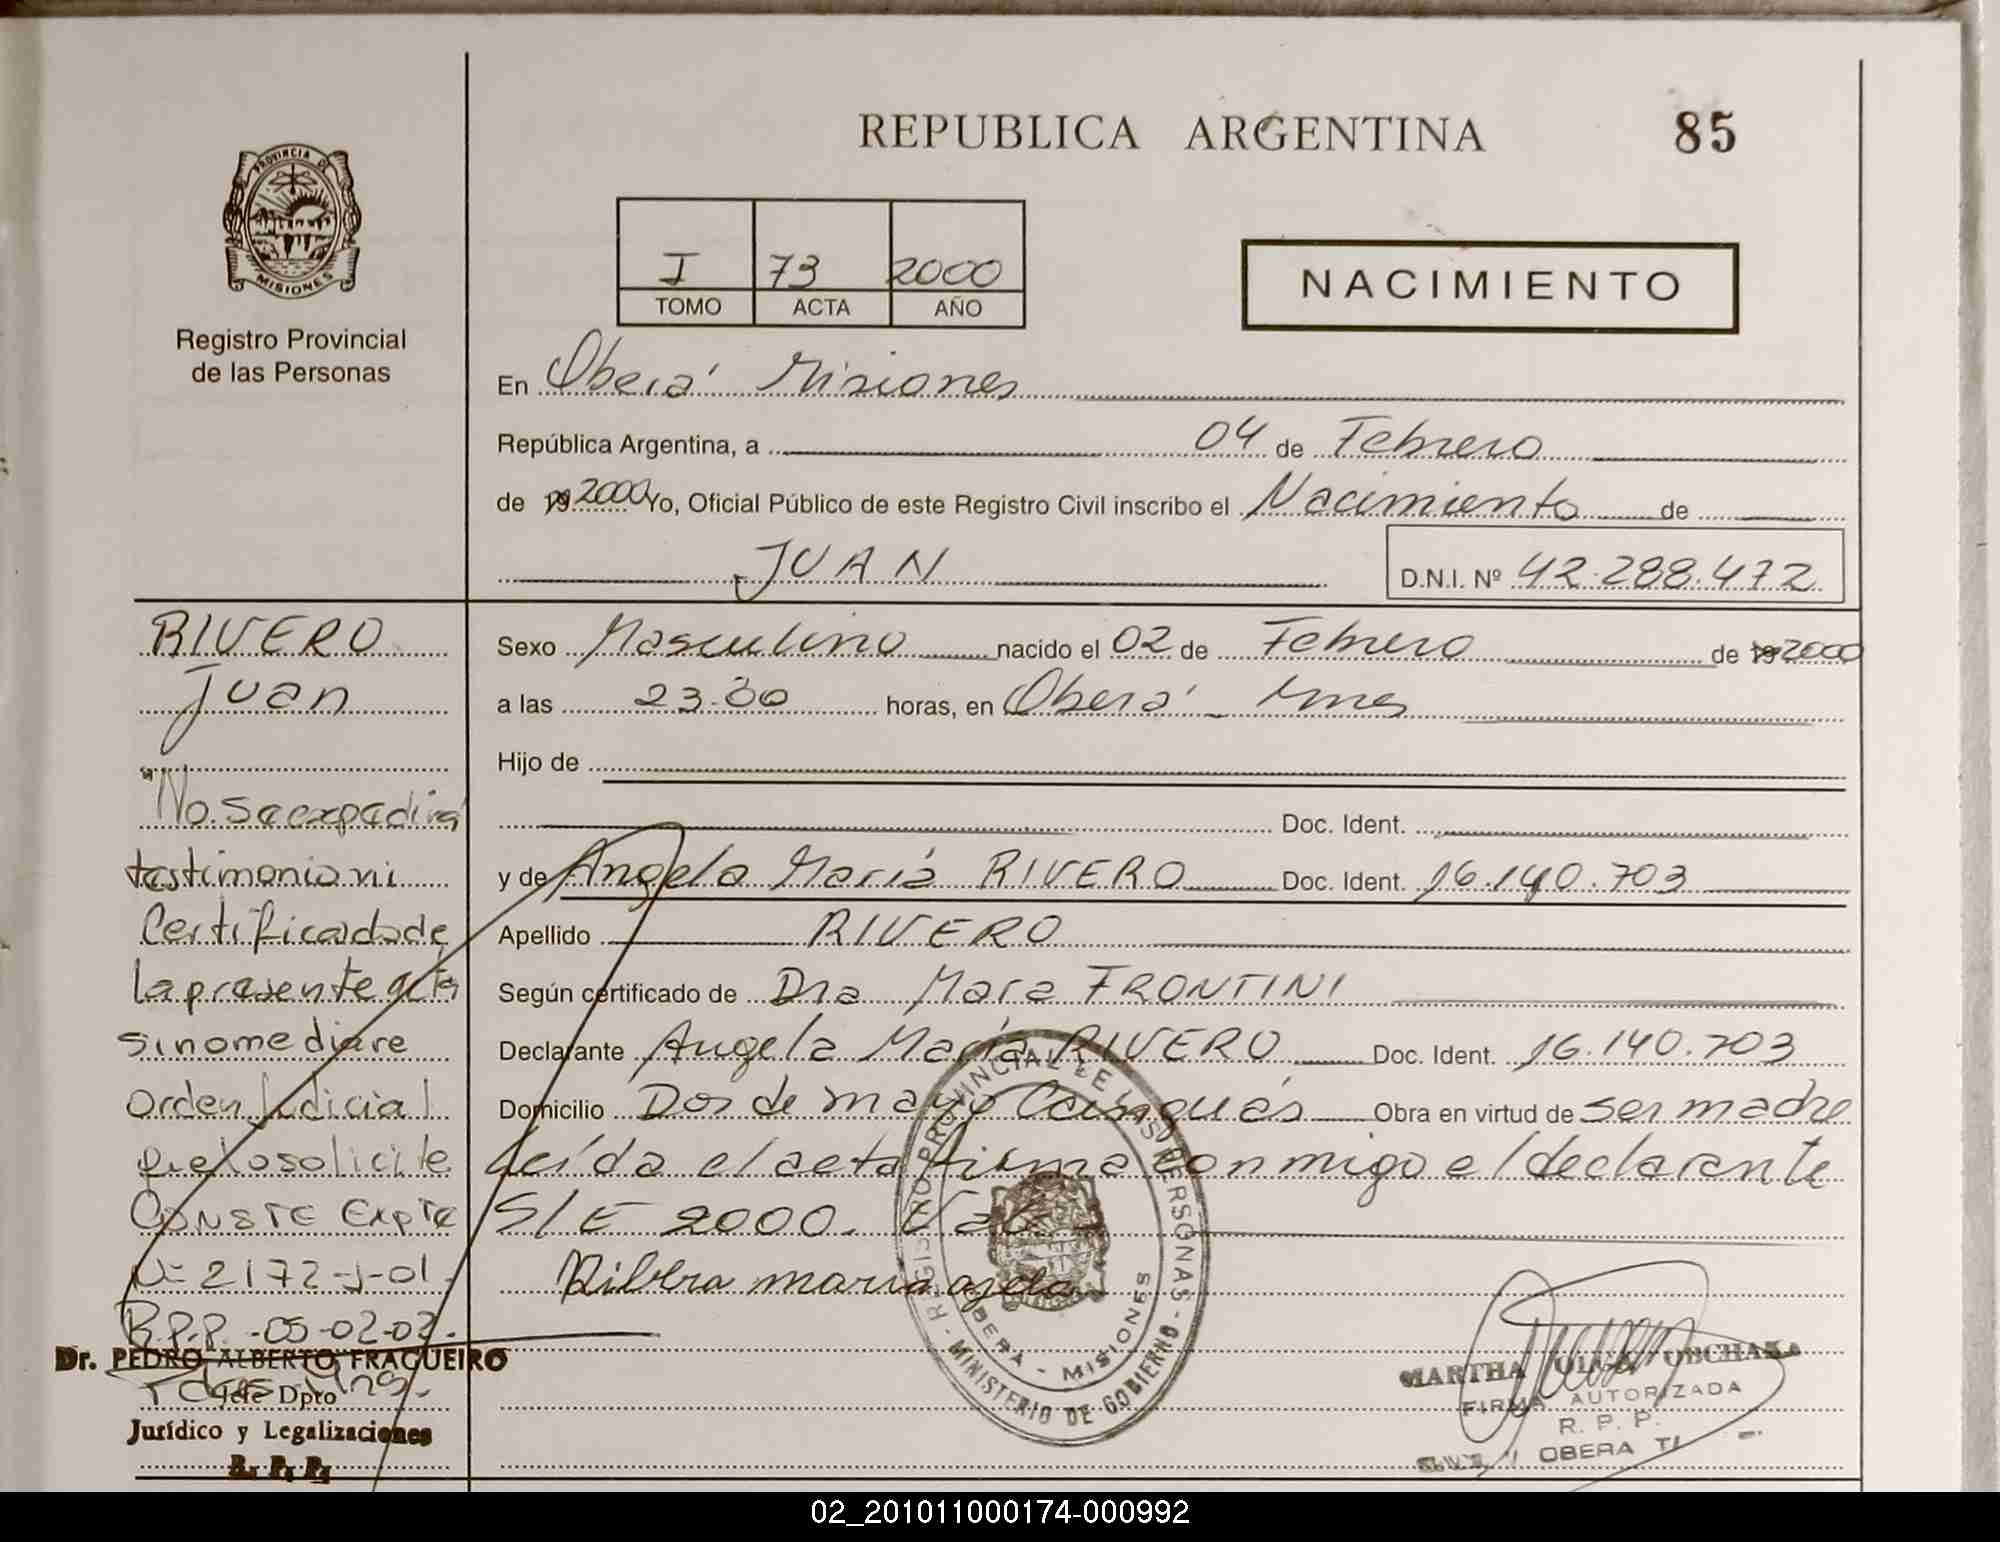 REPUBLICA ARGENTINA
85
PROVINCIA DE
MISIONES
Registro Provincial
de las Personas
I 73 2000
TOMO ACTA AÑO
NACIMIENTO
En Oberá Misiones
República Argentina, a 04 de Febrero
de 19 2000 Yo, Oficial Público de este Registro Civil inscribo el Nacimiento de
JUAN
D.N.I. Nº 42.288.472
RIVERO
Juan
"No se expedirá
testimonio ni
Certificado de
la presente acta
si no mediare
orden judicial
que lo solicite
CONSTE Expte
Nº 2172-J-01.
R.P.P. -05-02-02.
Dr. PEDRO ALBERTO FRAGUEIRO
Jefe Dpto
Jurídico y Legalizaciones
R. P. P.
Sexo Masculino nacido el 02 de Febrero de 19 2000
a las 23.00 horas, en Oberá - Mnes
Hijo de
Doc. Ident.
y de Angela María RIVERO Doc. Ident. 16.140.703
Apellido RIVERO
Según certificado de Dra Mara FRONTINI
Declarante Angela María RIVERO Doc. Ident. 16.140.703
Domicilio Dos de mayo Cainguás Obra en virtud de ser madre
leída el acta firma conmigo el declarante
S/E 2000. Vale
Ribera maria
REGISTRO PROVINCIAL DE LAS PERSONAS - MINISTERIO DE GOBIERNO -
OBERA - MISIONES
MARTHA
FIRMA AUTORIZADA
R. P. P.
OBERA
02_201011000174-000992